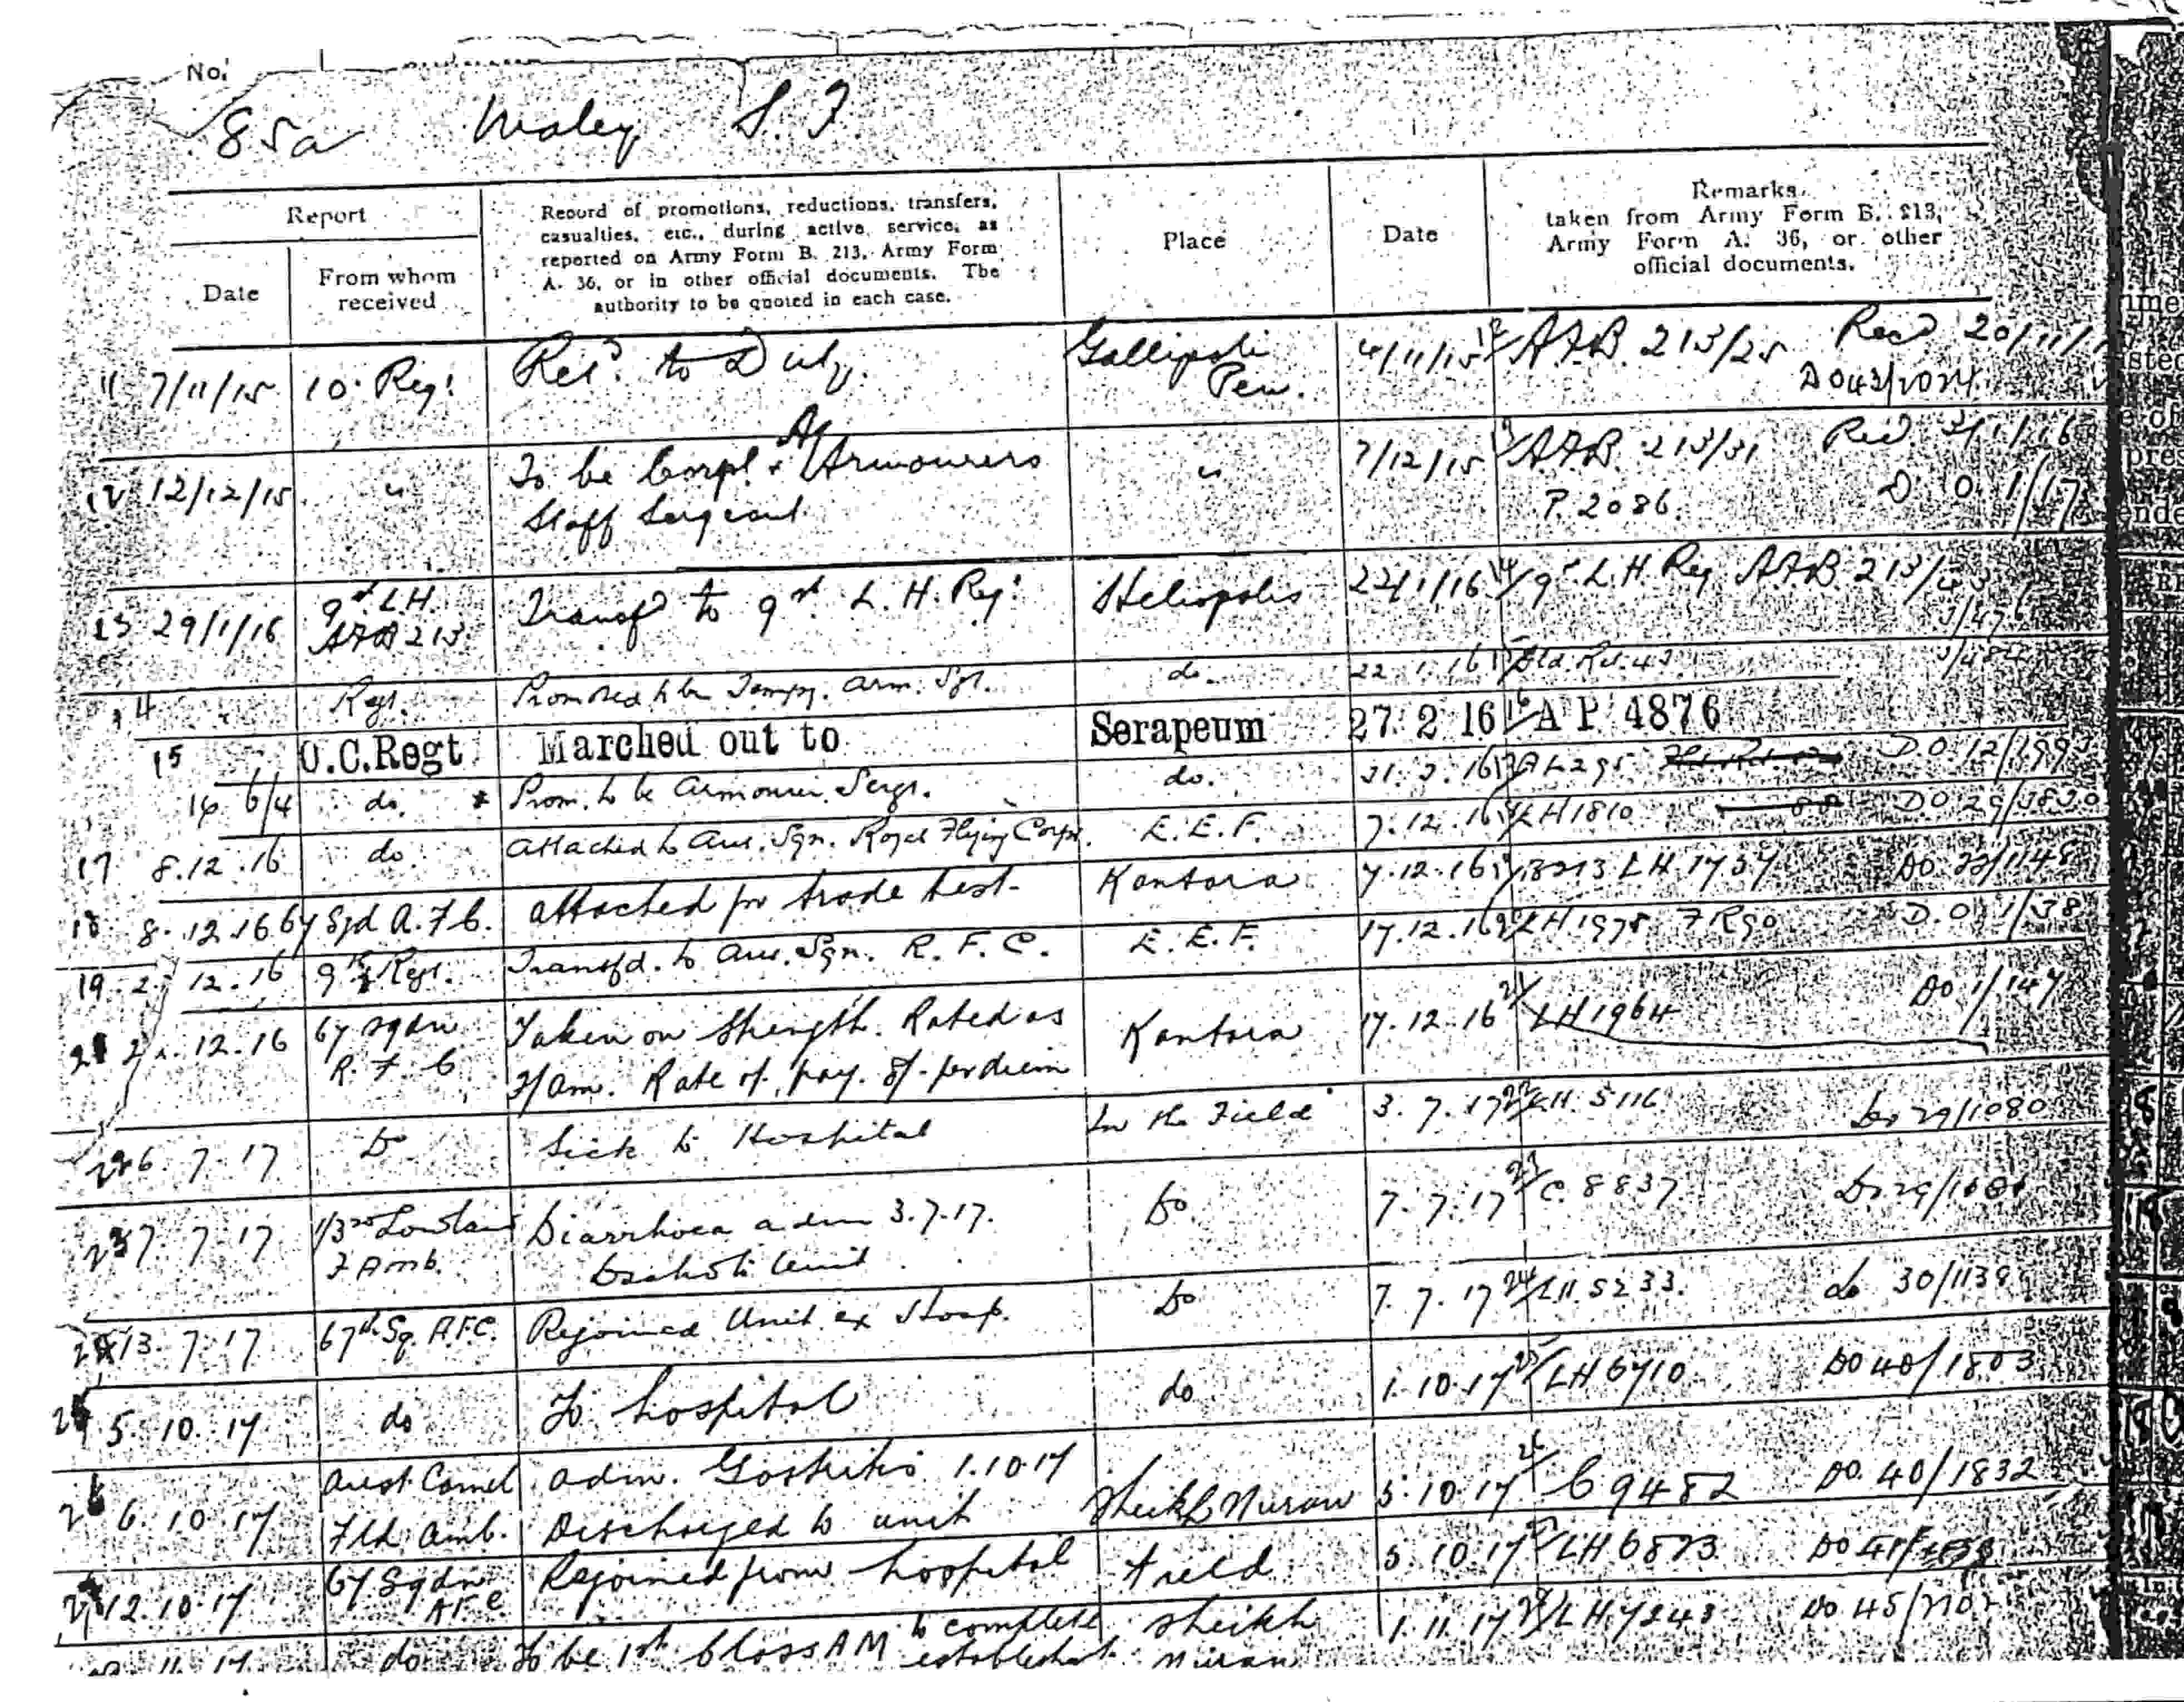 No.
85a Maley S. F.
Report
Record of promotions, reductions, transfers,
casualties, etc., during active service, as
reported on Army Form B. 213, Army Form
A. 36, or in other official documents. The
authority to be quoted in each case.
Place
Date
Remarks
taken from Army Form B. 213,
Army Form A. 36, or other
official documents.
Date
From whom
received
11 7/11/15 10 Regt Ret'd to Duty. Gallipoli 4/11/15 12/ AFB 213/25 Recd 20/11/
Pen. DO43/2024
12 12/12/15 " To be Corpl & A/Armourers " 7/12/15 13/ AFB. 213/31 Recd 3/1/16
Staff Sergeant P. 2086. D O 1/17
13 29/1/16 9th L.H. AFB 213 Transfd to 9th L. H. Regt Heliopolis 22/1/16 14/ 9th L.H. Reg AFB 213/43
J/476
14 " Regt. Promoted to be Tempy. Arm. Sgt. do. 22.1.16 15/ Fld. Ret. 43 J/484
15 O.C.Regt Marched out to Serapeum 27 2 16 16/ A P 4876
16 6/4 do. Prom. to be Armourer Sergt. do. 31.3.16 17/ AL295 DO 12/1993
17 8.12.16 do. Attached to Aus. Sqn. Royal Flying Corps. E.E.F. 7.12.16 18/ LH1810 DO 29/3830
18 8.12.16 67 Sqd A.F.C. attached for trade test Kantara 7.12.16 19/ B213 LH 1737 DO 33/1148
19 2 12.16 9th Regt. Transfd. to Aus. Sqn. R. F. C. E.E.F. 17.12.16 20/ LH1975 F R90 D.O. 1/38
21 2 .12.16 67 Sqdn Taken on Strength. Rated as Kantara 17.12.16 21/ LH1964 DO 1/147
R. F. C 3/am. Rate of pay. 8/- per diem
22 6.7.17 Do Sick to Hospital In the Field 3.7.17 22/ LH. 5116 Do 29/1080
23 7.7.17 1/3rd Lowland Diarrhoea adm 3.7.17. Do 7.7.17 23/ C. 8837
F Amb. Disch to Unit
24 13.7.17 67th Sq. A.F.C. Rejoined Unit ex Hosp. Do 7.7.17 24/ LH. 5233. do 30/1139
25 5.10.17 do To hospital do 1.10.17 25/ LH 6710 DO 40/1803
26 6.10.17 Aust Camel adm. 1.10.17 Sheikh Nuran 5.10.17 26/ C 9482 DO. 40/1832
Fld Amb. Discharged to unit
27 12.10.17 67 Sqdn AFC Rejoined from hospital Field 5.10.17 27/ LH 6873
11.17 do To be 1st Class AM to complete Sheikh 1.11.17 28/ LH 7243 DO 45/2102
establishmt. Nuran